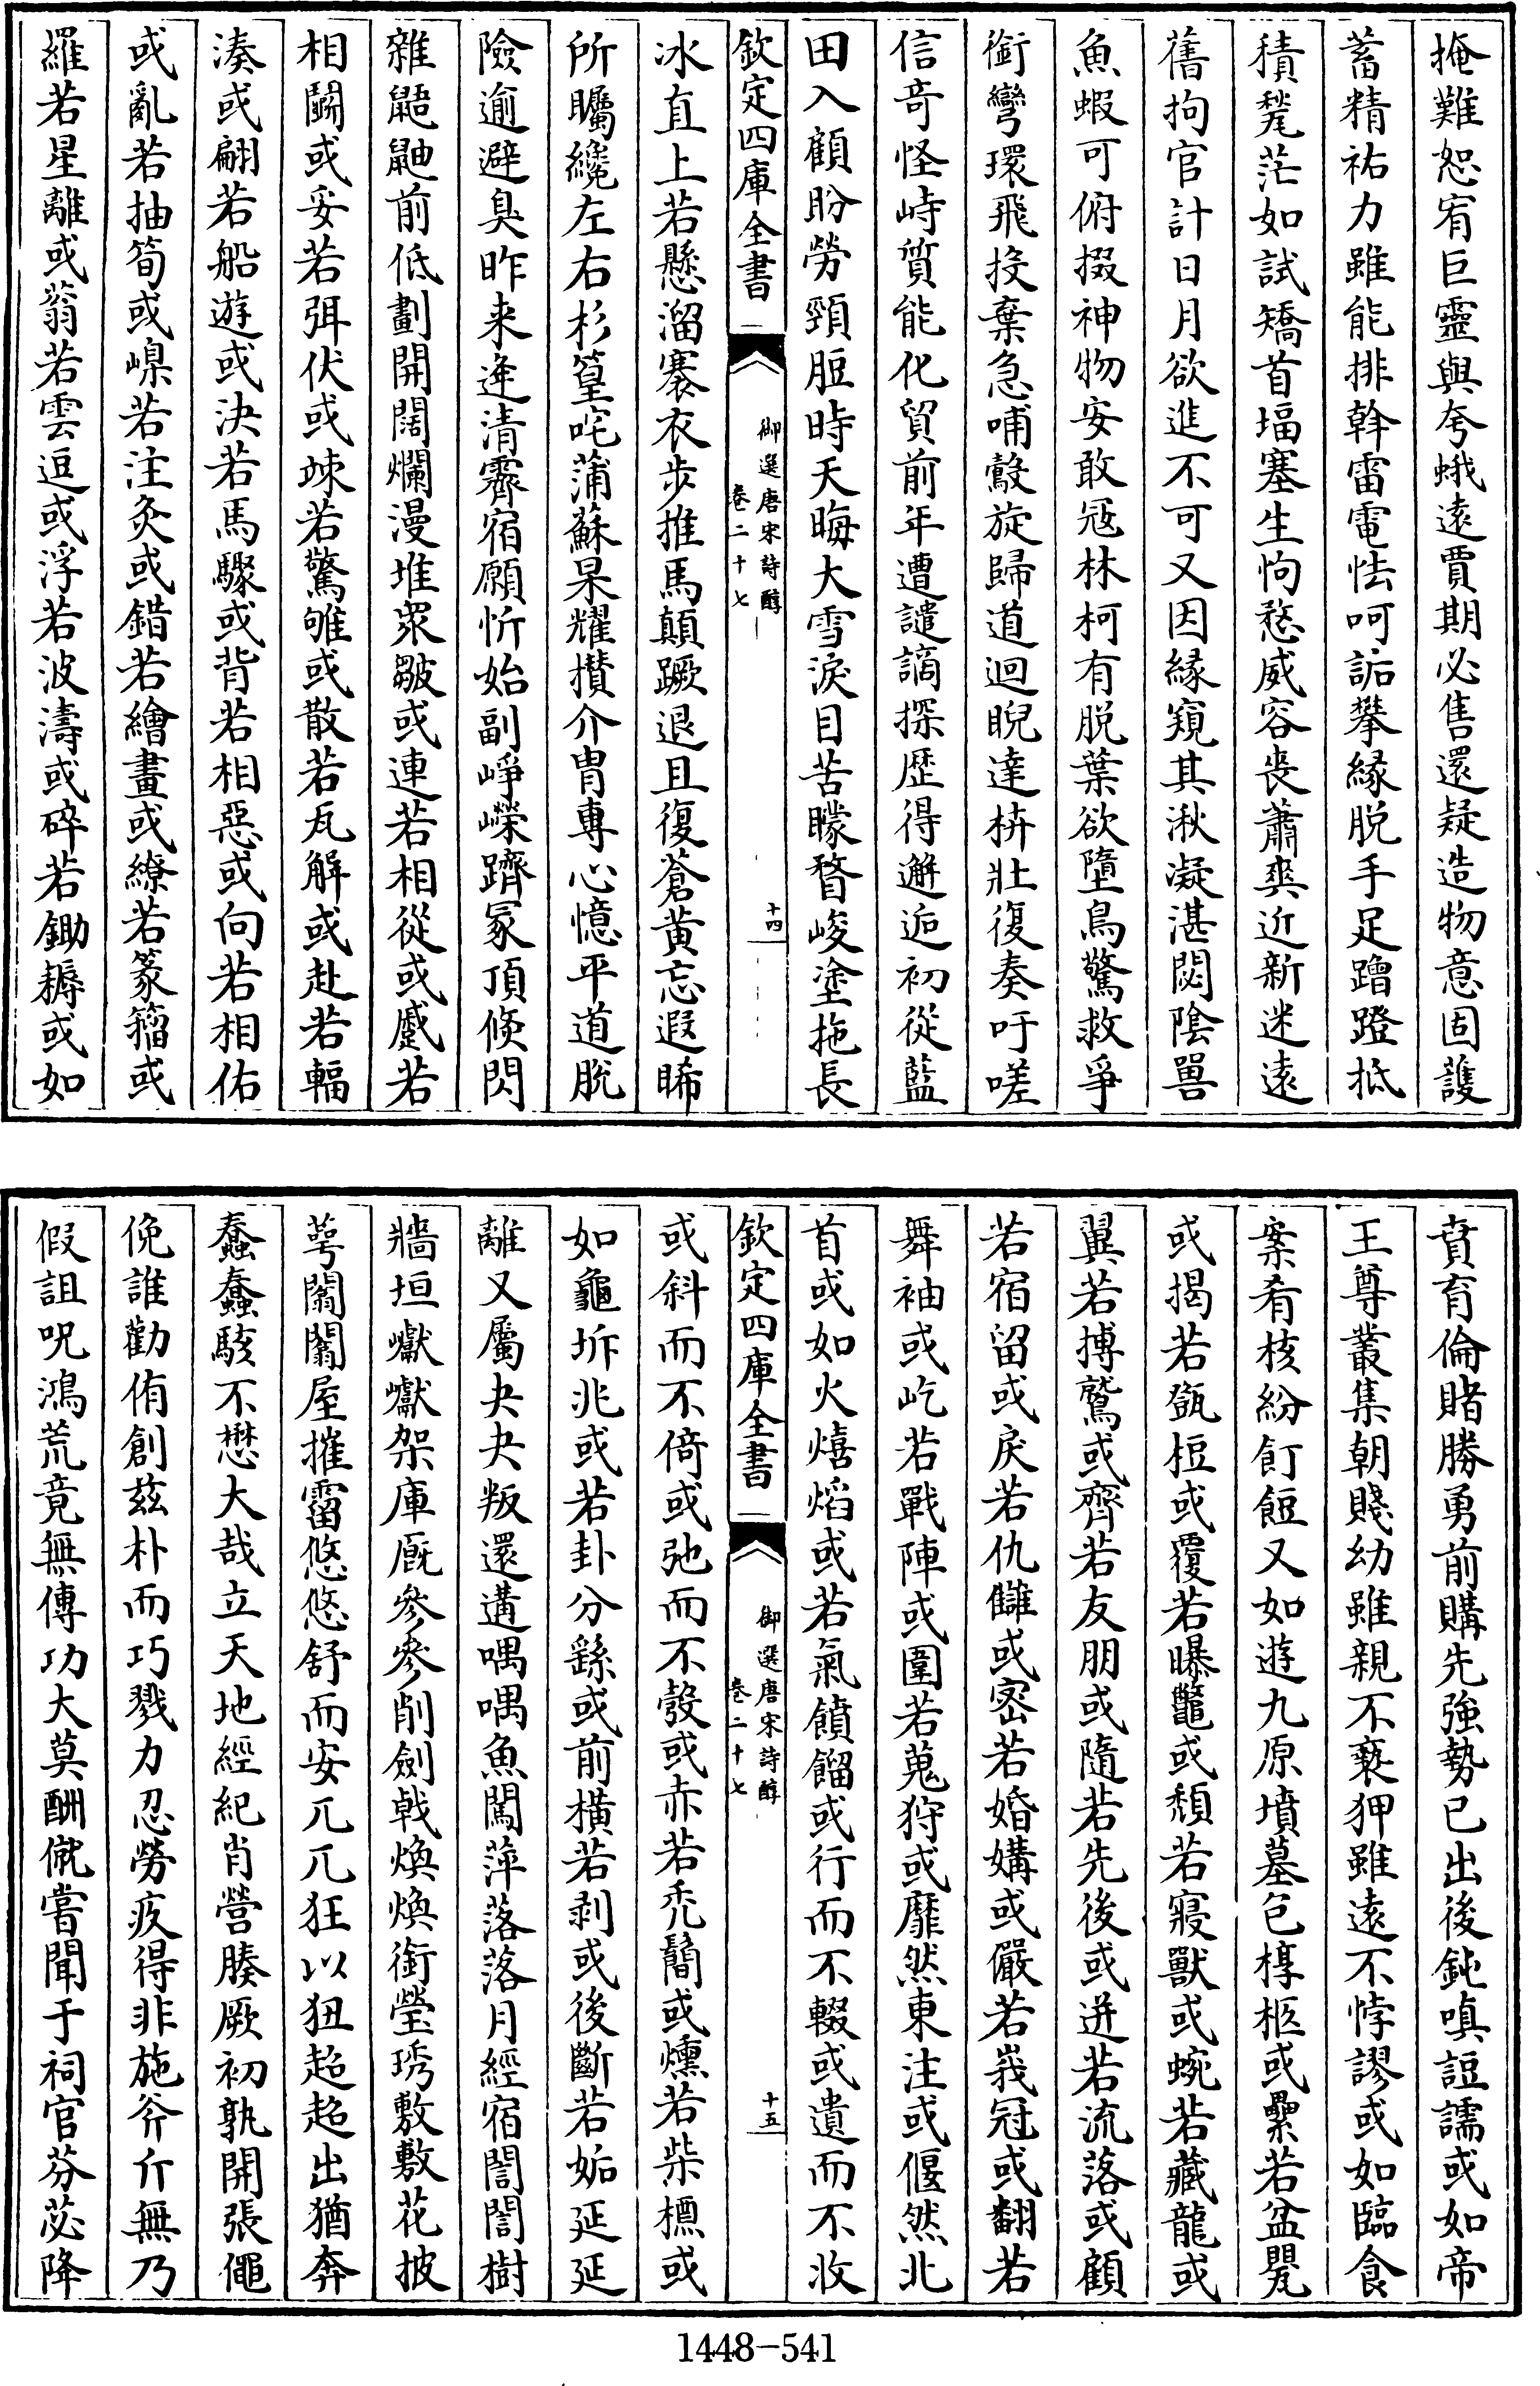 掩難恕宥巨靈與夸蛾遠賈期必售還疑造物意固護
蓄精祐力雖能排斡雷電怯呵詬攀緣脫手足蹭蹬抵
積甃茫如試矯首堛塞生怐愗威容喪蕭爽近新迷遠
舊拘官計日月欲進不可又因緣窺其湫凝湛閟陰嘼
魚蝦可俯掇神物安敢寇林柯有脫葉欲墮鳥驚救爭
銜彎環飛投棄急哺鷇旋歸道迴睨達枿壯復奏吁嗟
信奇怪峙質能化貿前年遭譴謫探歷得邂逅初從藍
田入顧盻勞頸脰時天晦大雪淚目苦矇瞀峻塗拖長
欽定四庫全書
御選唐宋詩醇
卷二十七
十四
冰直上若懸溜褰衣步推馬顛蹶退且復蒼黃忘遐睎
所矚纔左右杉篁咤蒲蘇杲耀攢介胄專心憶平道脫
險逾避臭昨来逢清霽宿願忻始副崢嶸躋冢頂倐閃
雜鼯鼬前低劃開闊爛漫堆衆皺或連若相從或蹙若
相鬭或妥若弭伏或竦若驚雊或散若瓦解或赴若輻
湊或翩若船遊或決若馬驟或背若相惡或向若相佑
或亂若抽筍或嵲若注灸或錯若繪畫或繚若篆籀或
羅若星離或蓊若雲逗或浮若波濤或碎若鋤耨或如
賁育倫賭勝勇前購先強勢已出後鈍嗔䛠譳或如帝
王尊叢集朝賤幼雖親不䙝狎雖遠不悖謬或如臨食
案肴核紛飣餖又如遊九原墳墓包槨柩或纍若盆甖
或揭若㽅梪或覆若曝鼈或頹若寢獸或蜿若藏龍或
翼若搏鷲或齊若友朋或隨若先後或迸若流落或顧
若宿留或戾若仇讎或密若婚媾或儼若峩冠或翻若
舞袖或屹若戰陣或圍若蒐狩或靡然東注或偃然北
首或如火熺焰或若氣饙餾或行而不輟或遺而不收
欽定四庫全書
御選唐宋詩醇
卷二十七
十五
或斜而不倚或弛而不彀或赤若禿鬜或燻若柴槱或
如龜坼兆或若卦分繇或前橫若剥或後斷若姤延延
離又屬夬夬叛還遘喁喁魚闖萍落落月經宿誾誾樹
牆垣巘巘架庫廐參參削劍戟煥煥銜瑩琇敷敷花披
萼闟闟屋摧霤悠悠舒而安兀兀狂以狃超超出猶奔
蠢蠢駭不懋大哉立天地經紀肖營腠厥初孰開張僶
俛誰勸侑創茲朴而巧戮力忍勞疚得非施斧斤無乃
假詛呪鴻荒竟無傳功大莫酬僦嘗聞于祠官芬苾降
1448-541